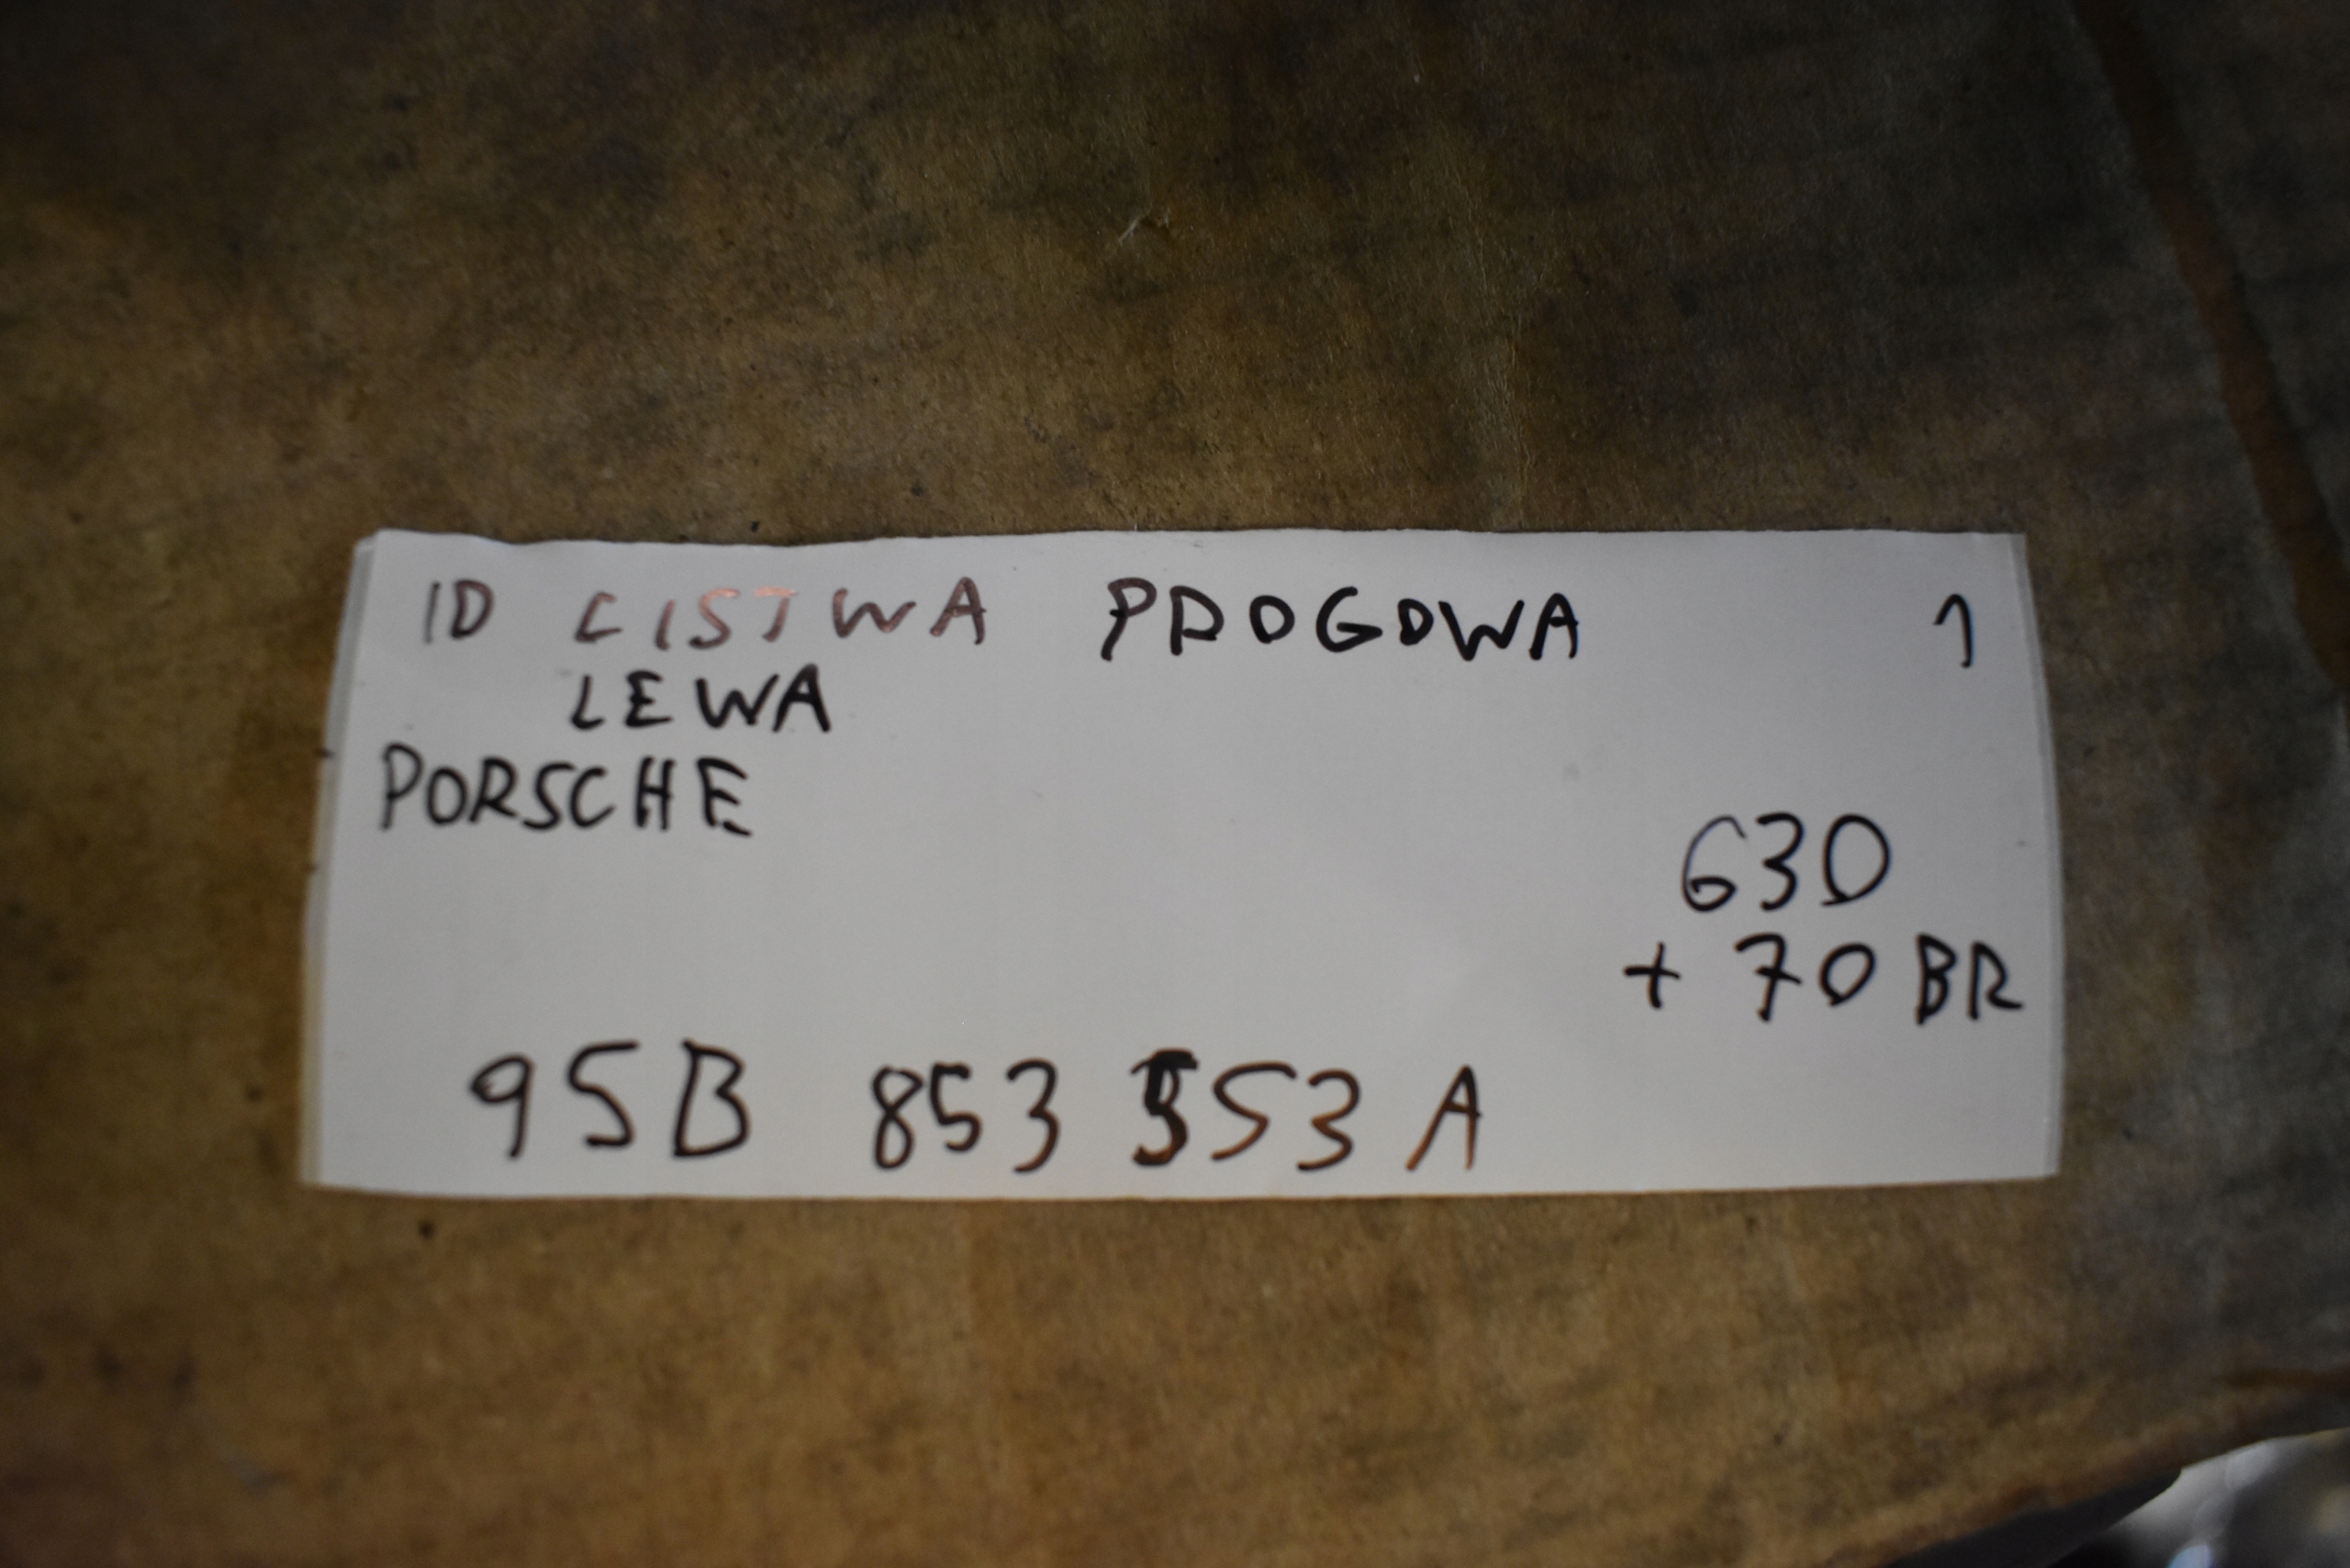 ID LISTWA PROGOWA 1
LEWA
PORSCHE
630
+ 70 BR
95B 853 553 A